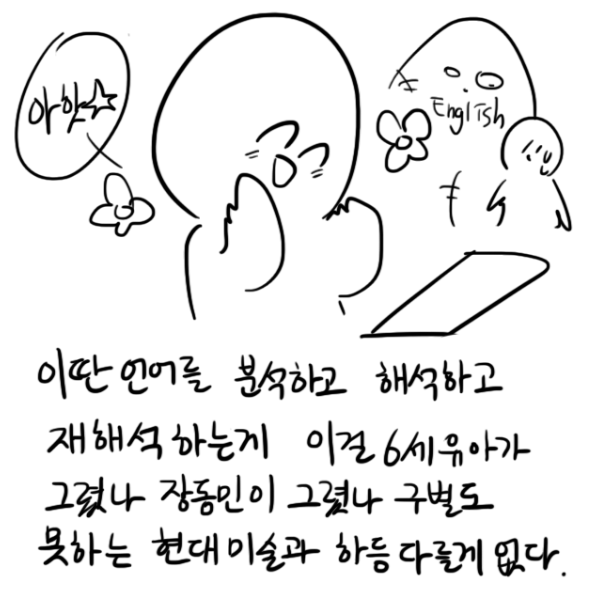 아핫☆
English
이딴 언어를 분석하고 해석하고
재해석하는게 이걸 6세유아가
그렸나 장동민이 그렸나 구별도
못하는 현대미술과 하등 다를게 없다.